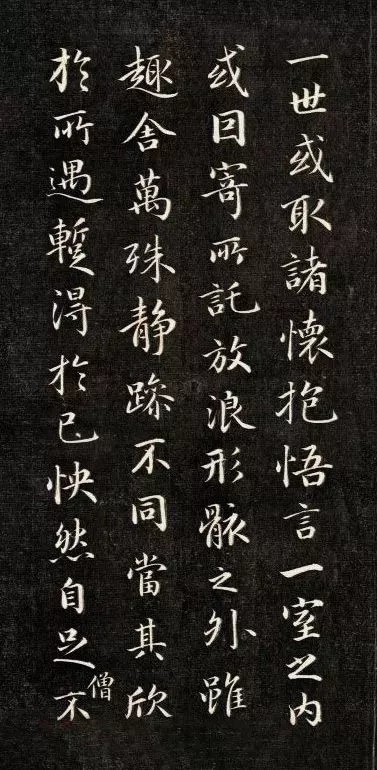 一世或取諸懷抱悟言一室之內
或因寄所託放浪形骸之外雖
趣舍萬殊靜躁不同當其欣
於所遇暫得於己怏然自足不
僧